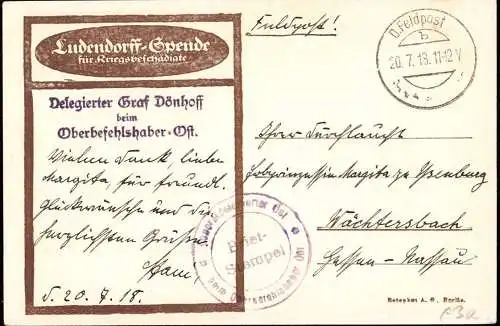 Ludendorff-Spende
für Kriegsbeschädigte
Delegierter Graf Dönhoff
beim
Oberbefehlshaber-Ost.
Vielen Dank, liebe
Margita, für freundl.
Glückwünsche und die
herzlichsten Grüße.
20.7.18.
Feldpost!
D. Feldpost
b
20.7.18.11-12V
Ihrer Durchlaucht
Erbprinzessin Margita zu Ysenburg
Wächtersbach
Hessen-Nassau
Brief-
Stempel
beim Oberbefehlshaber Ost
Rotophot A. G., Berlin.